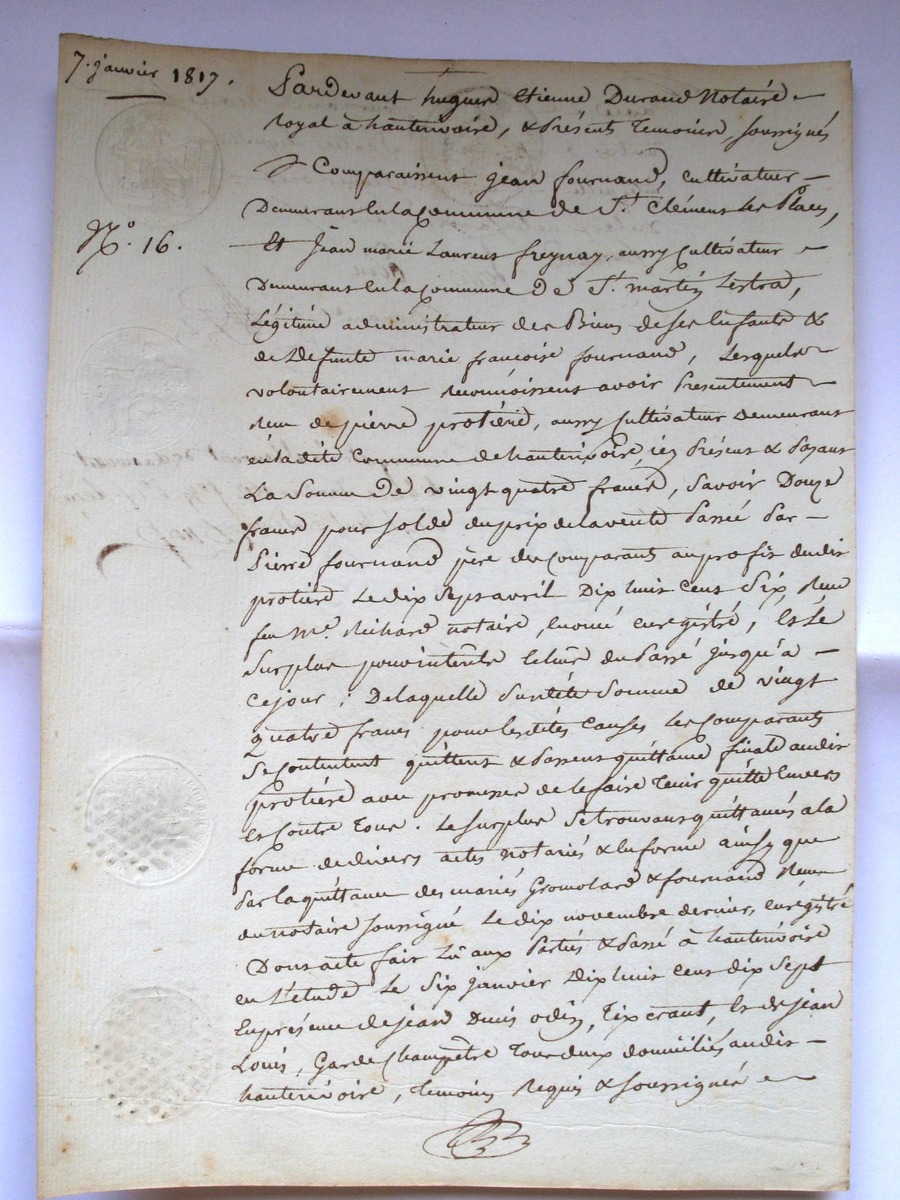 7. janvier 1817.
N.o 16.
Pardevant hugues Etienne Durand Notaire
royal à hauterivoire, & Présents Temoins, soussignés
Comparaissent jean fournand, cultivateur
Demeurant en la Commune de St. Clément les Places,
Et Jean marie Laurent freynay, aussy Cultivateur
Demeurant en la Commune De St. martin Lestra,
Légitime administrateur des Biens de ses Enfants &
de Défunte marie francoise fournand, Lesquels
volontairement reconnoissent avoir Présentement
Reçu de pierre protière, aussy Cultivateur Demeurant
en ladite Commune de hauterivoire, icy Présent & Payant
La Somme De vingt quatre francs, Savoir Douze
francs pour solde du prix de la vente Passée Par
Pierre fournand père des Comparants au profit dudit
protière Le dix Sept avril Dix huit Cent Six, Reçue
feu Me. Richard notaire, enregistré, Et Le
Surplus pour interêts du Passé jusqu'à
Ce jour; De laquelle Susdite Somme de vingt
quatre francs pour lesdites Causes Les Comparants
Se Contentent quittent & Passent quittance finale audit
protière avec promesse de le faire Tenir quitte Envers
Et Contre Tous. Le Surplus Se trouvant quittancé à la
forme de divers actes notariés & en forme ainsy que
Par la quittance des mariés Gromolard & fournand Reçue
du notaire soussigné Le dix novembre dernier, enrégistré
Dont acte fait Lû aux Parties & Passé à hauterivoire
en L'étude Le Six janvier Dix huit Cent dix Sept
En présence de jean Denis odin, Tixerant, Et de jean
Louis, Garde Champêtre Tous deux domiciliés audit
hauterivoire, Temoins Requis & Soussignés